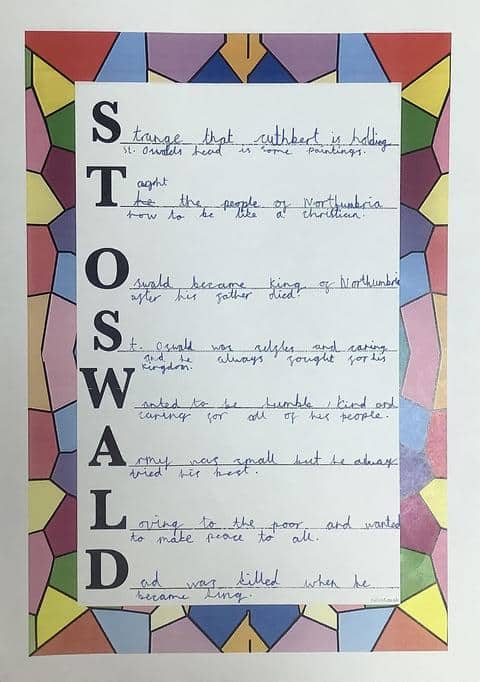 Strange that cuthbert is holding
St. Oswalds head is some paintings.
Taught
the the people of Northumbria
how to be like a christian.
Oswald became king of Northumbria
after his father died.
St. Oswald was selfles and caring
and he always fought for his
Kingdom.
Wanted to be humble, kind and
caring for all of his people.
Army was small but he always
tried his best.
Loving to the poor and wanted
to make peace to all.
Dad was killed when he
became king.